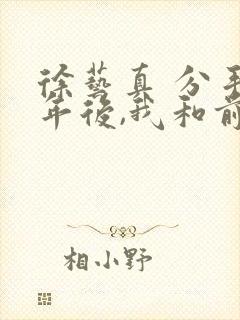 徐藝真 分手
年後,我和前
相小野